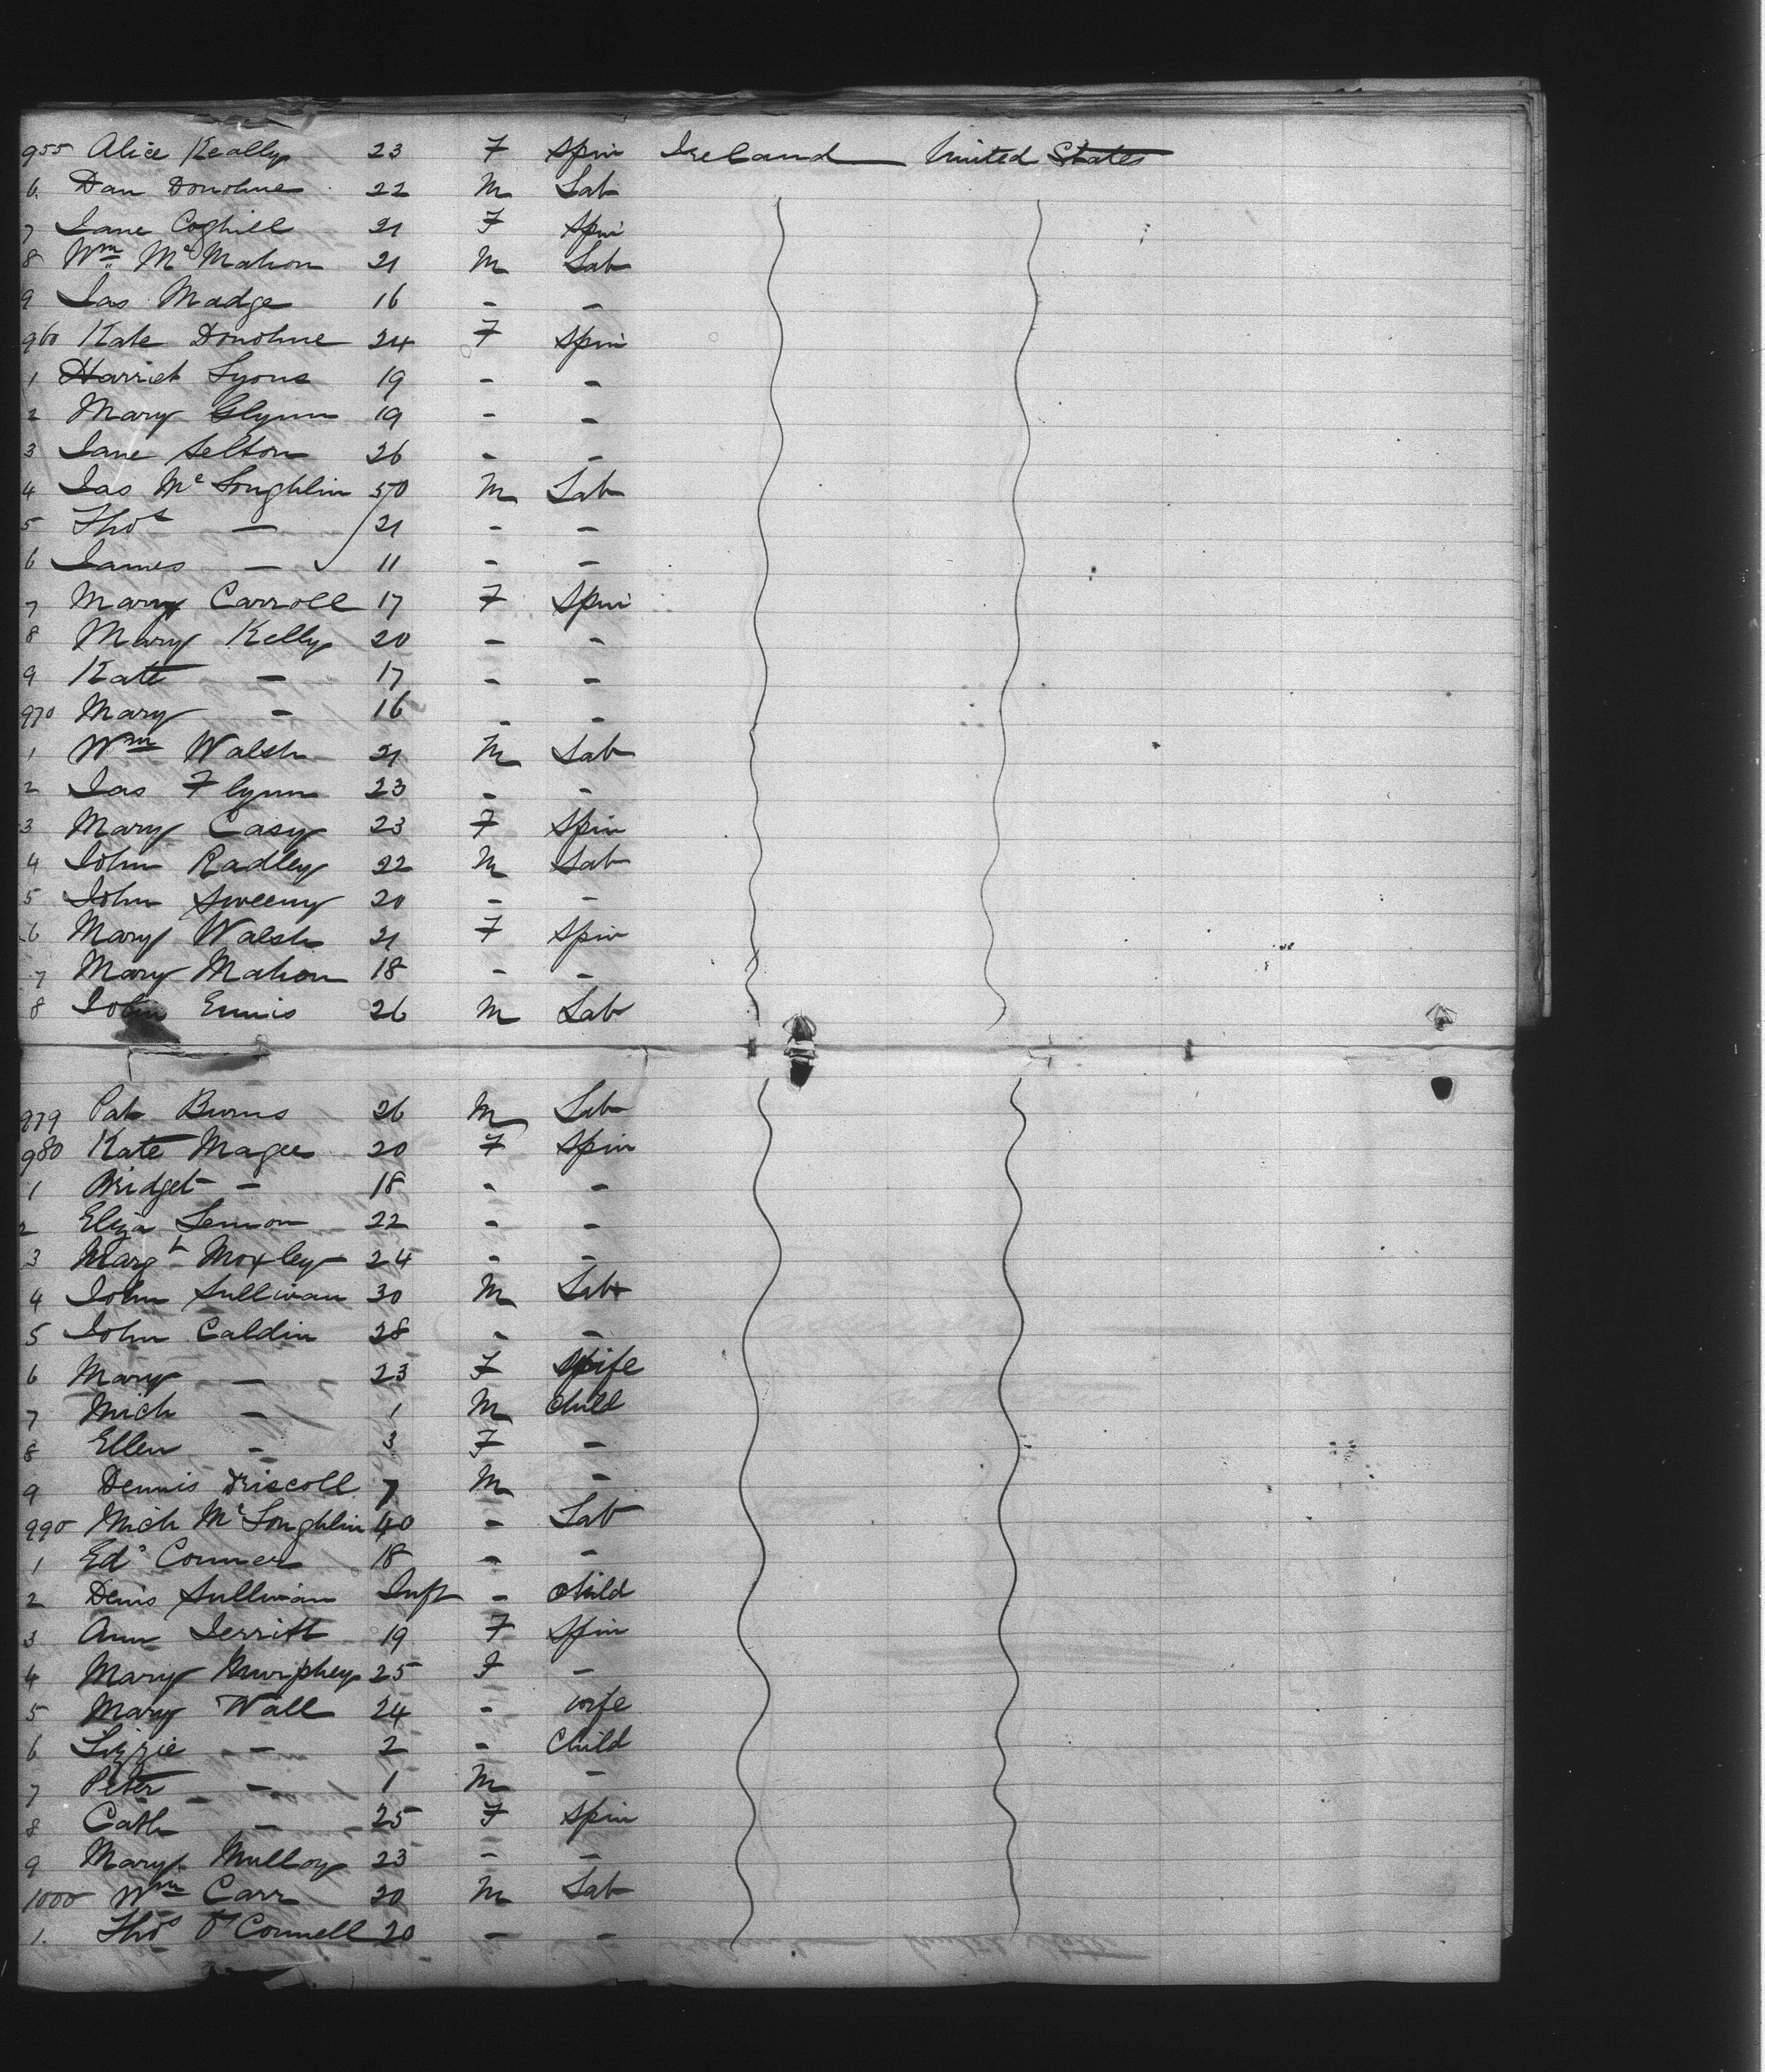 955 Alice Keally 23 F Spin Ireland United States
6 Dan Donohue 22 M Lab
7 Jane Coghill 21 F Spin
8 Wm McMahon 21 M Lab
9 Jas Madge 16 - -
960 Kate Donohue 24 F Spin
1 Harriet Lyons 19 - -
2 Mary Glynn 19 - -
3 Jane Selton 26 - -
4 Jas McLoughlin 50 M Lab
5 Thos — 21 - -
6 James — 11 - -
7 Mary Carroll 17 F Spin
8 Mary Kelly 20 - -
9 Kate - 17 - -
970 Mary - 16 - -
1 Wm Walsh 21 M Lab
2 Jas Flynn 23 - -
3 Mary Casy 23 F Spin
4 John Radley 22 M Lab
5 John Sweeny 20 - -
6 Mary Walsh 21 F Spin
7 Mary Mahon 18 - -
8 John Ennis 26 M Lab
979 Pat Burns 26 M Lab
980 Kate Magee 20 F Spin
1 Bridget - 18 - -
2 Eliza Lennon 22 - -
3 Margt Moxley 24 - -
4 John Sullivan 30 M Lab
5 John Caldin 28 - -
6 Mary — 23 F Wife
7 Mich - 1 M Child
8 Ellen - 3 F -
9 Dennis Driscoll 7 M -
990 Mich McLoughlin 40 - Lab
1 Edd Conner 18 - -
2 Denis Sullivan Inft - Child
3 Ann Jerritt 19 F Spin
4 Mary Murphey 25 F -
5 Mary Wall 24 - Wife
6 Lizzie - 2 - Child
7 Peter - 1 M -
8 Cath - 25 F Spin
9 Mary Mulloy 23 - -
1000 Wm Carr 20 M Lab
1. Thos O'Connell 20 - -